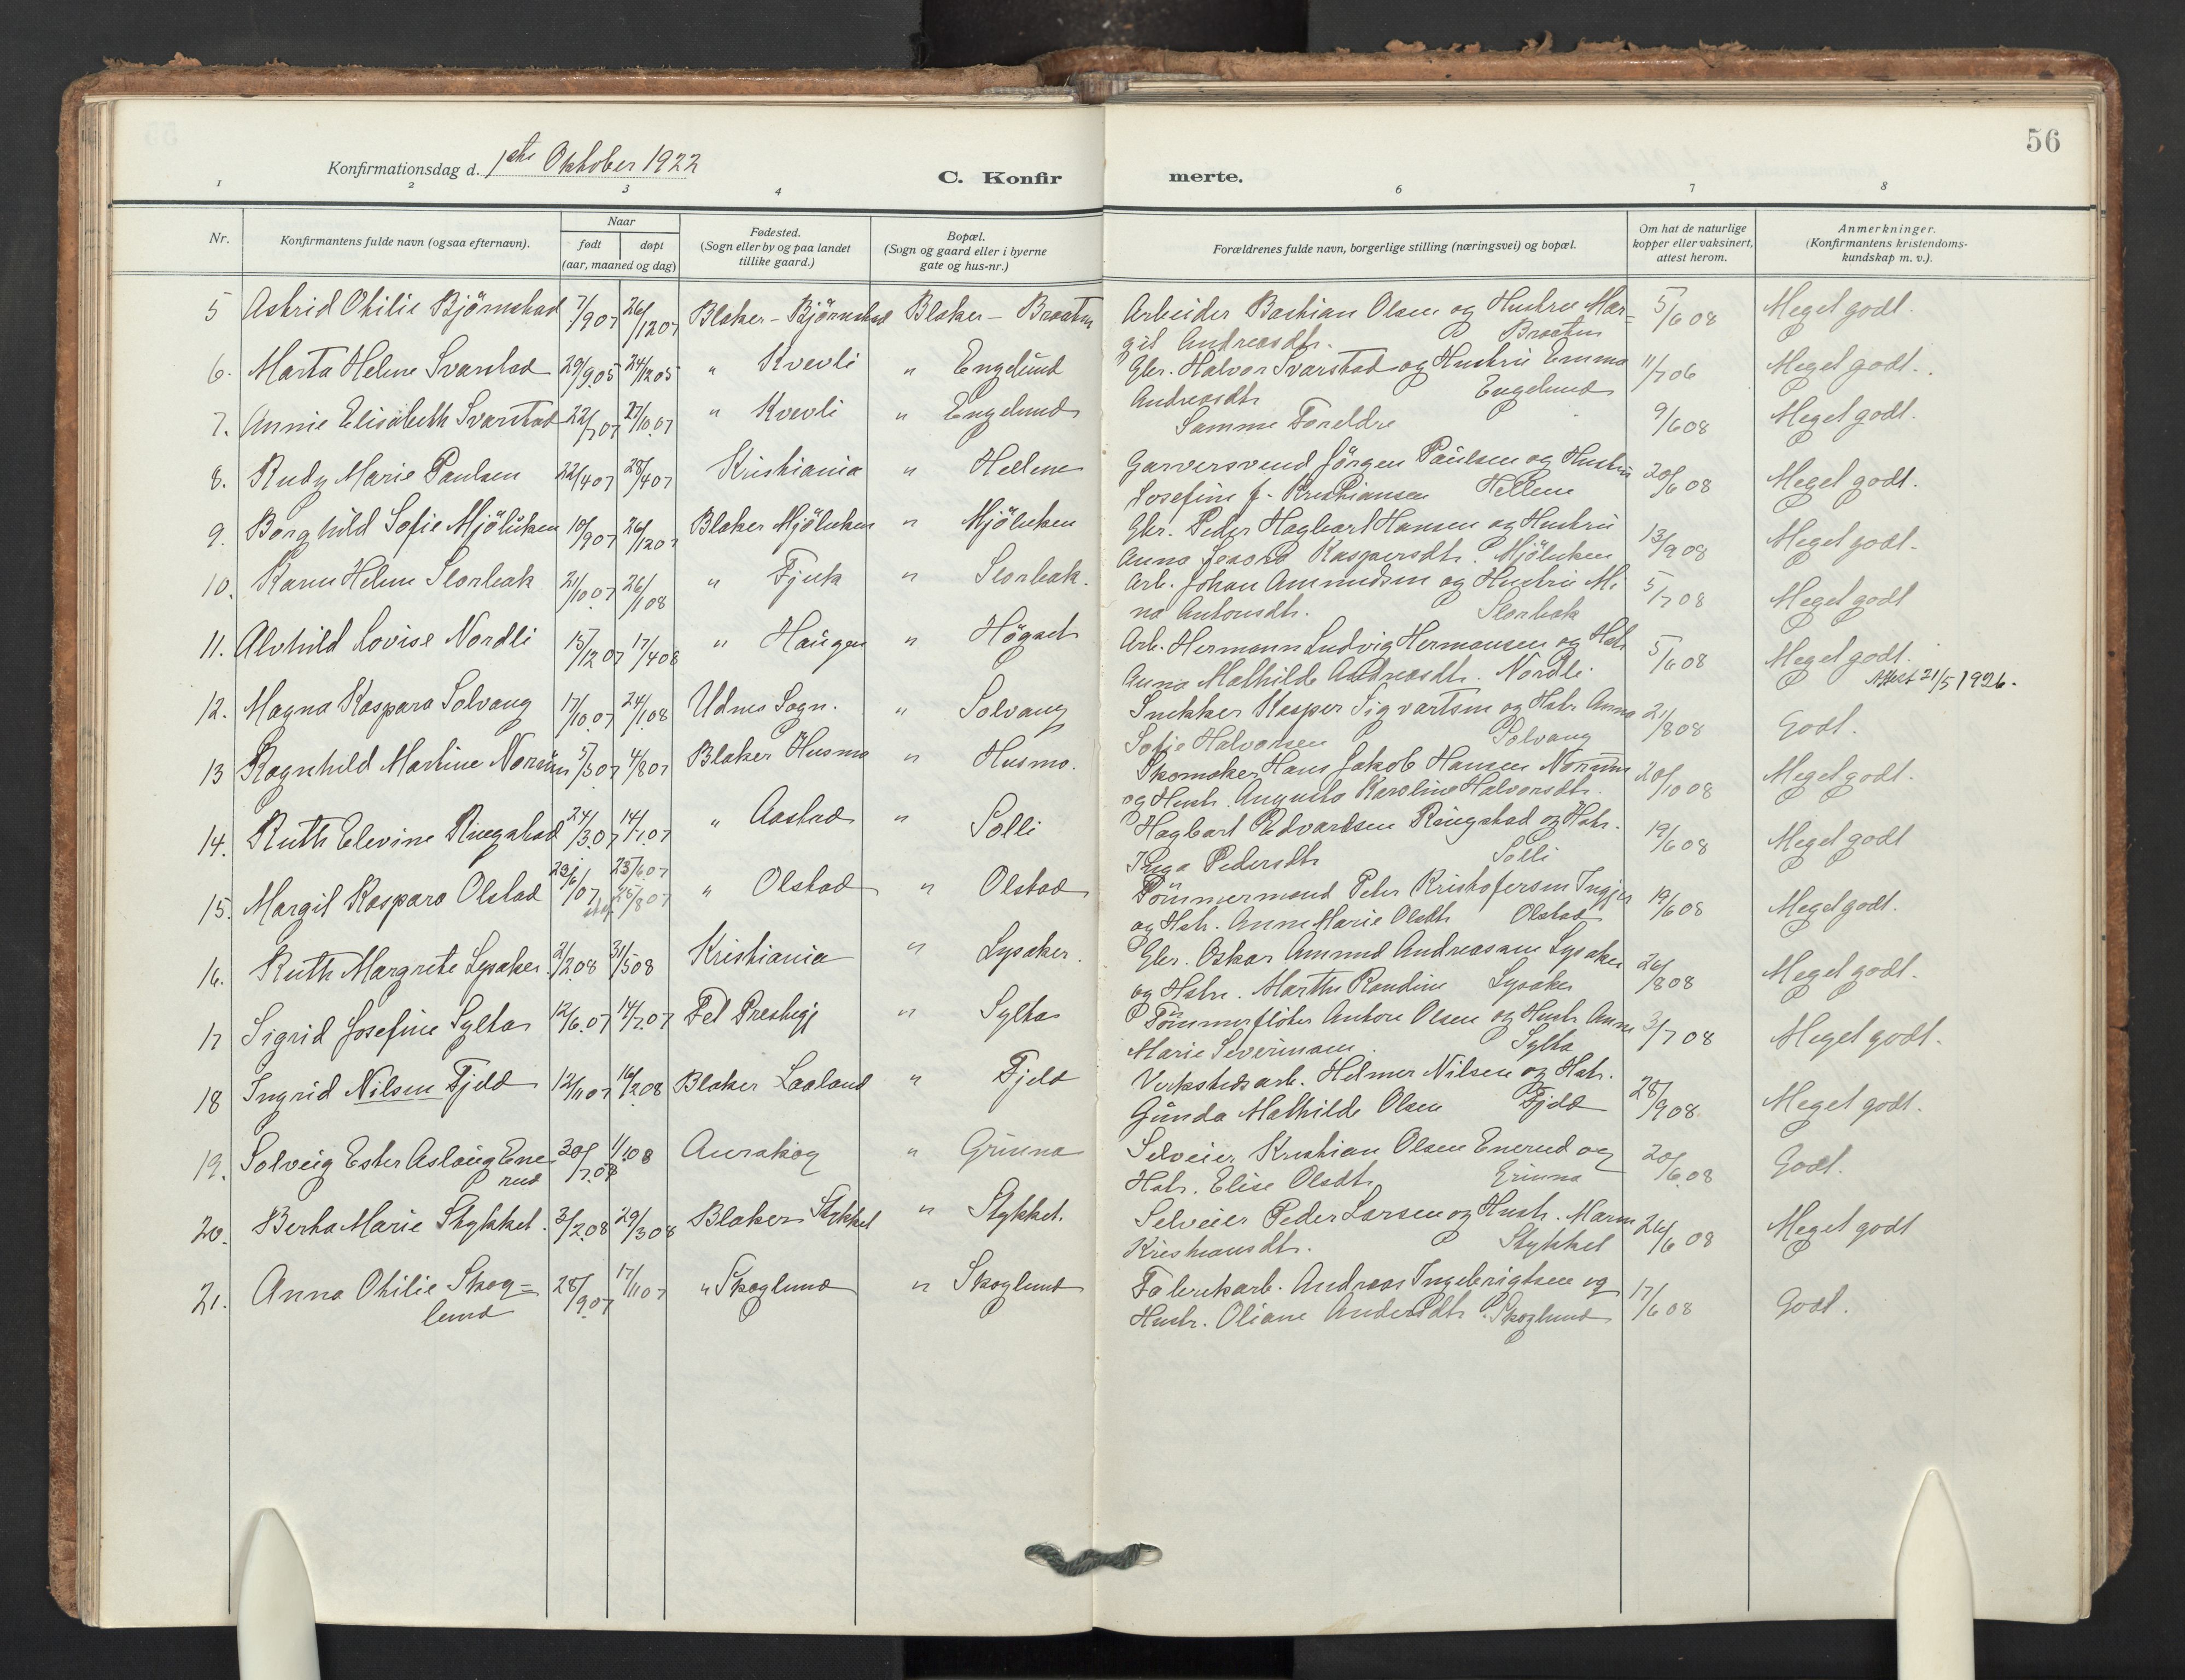 56
Konfirmationsdag d. 1ste Oktober 1922
C. Konfirmerte.
1 2 3 4 6 7 8
Nr.
Konfirmantens fulde navn (ogsaa efternavn).
Naar
født døpt
(aar, maaned og dag)
Fødested.
(Sogn eller by og paa landet
tillike gaard.)
Bopæl.
(Sogn og gaard eller i byerne
gate og hus-nr.)
Forældrenes fulde navn, borgerlige stilling (næringsvei) og bopæl.
Om hat de naturlige
kopper eller vaksinert,
attest herom.
Anmerkninger.
(Konfirmantens kristendoms-
kundskap m. v.).
5 Astrid Othilie Bjørnstad 7/9 07 26/12 07 Blaker - Bjørnstad Blaker - Braaten Arbeider Bastian Olsen og Hustru Mar= 5/6 08 Meget godt.
git Andreasdtr. Braaten
6. Marta Helene Svarstad 29/9 05 24/12 05 " Kvevli " Engelund Gbr. Halvor Svarstad og Hustru Emma 11/7 06 Meget godt.
Andreasdtr Engelund
7. Annie Elisabeth Svarstad 22/7 07 27/10 07 " Kvevli " Engelund Samme Foreldre 9/6 08 Meget godt.
8. Rudy Marie Paulsen 22/4 07 28/4 07 Kristiania " Hellene Garversvend Jörgen Paulsen og Hustru 20/6 08 Meget godt.
Josefine f. Kristiansen Hellene
9. Borghild Sofie Mjölüken 10/9 07 26/12 07 Blaker Mjöluken " Mjöluken Gbr. Peder Hagbart Hansen og Hustru 13/9 08 Meget godt.
Anna Kaspersdtr. Mjöluken
10. Karen Helene Storbak 21/10 07 26/1 08 " Fjuk " Storbak. Arb. Johan Amundsen og Hustru Mi 5/7 08 Meget godt
na Antonsdtr. Storbak
11. Alvhild Lovise Nordli 15/12 07 17/4 08 " Haugen " Högset Arb. Hermann Ludvig Hermansen og Hstr 5/6 08 Meget godt.
Anna Mathilde Andreasdtr. Nordli Attest 21/5 1926.
12. Magna Kaspara Solvang 17/10 07 24/1 08 Udnes Sogn. " Solvang Snekker Kasper Sigvartsen og Hstr. Anna 21/8 08 Godt.
Sofie Halvorsen Solvang
13 Ragnhild Martine Norüm 5/5 07 4/8 07 Blaker Husmo " Husmo. Skomaker Hans Jakob Hansen Norum 20/10 08 Meget godt.
og Hustr. Augusta Karoline Halvorsdtr.
14. Ruth Elevine Ringstad 24/3 07 14/7 07 " Aastad " Solli Hagbart Edvardsen Ringstad og Hstr. 19/6 08 Meget godt
Inga Pedersdtr Solli
15. Margit Kaspara Olstad 23/6 07 23/6 07 25/8 07 " Olstad " Olstad Tömmermand Peder Kristofersen Ingjer 19/6 08 Meget godt.
og Hstr. Anne Marie Olsdtr Olstad
16. Ruth Margrete Lysaker 21/2 08 31/5 08 Kristiania " Lysaker. Gbr. Oskar Amund Andreassen Lysaker 26/8 08 Meget godt.
og Hstr. Marthe Randine Lysaker
17 Sigrid Josefine Sylta 12/6 07 14/7 07 Fet Prestegj " Sylta Tömmerfløter Anton Olsen og Hustr Anne 3/7 08 Meget godt.
Marie Severinsen. Sylta
18 Ingrid Nilsen Fjeld 12/11 07 16/2 08 Blaker Laaland " Fjeld Verkstedsarb. Helmer Nilsen og Hstr. 28/9 08 Meget godt.
Günda Mathilde Olsen Fjeld
19. Solveig Ester Aslaug Ene 30/7 08 1/1 08 Aurskog " Grinna Selveier Kristian Olsen Enerud og 20/6 08 Godt.
rud Hstr. Elise Olsdtr Grinna
20. Berta Marie Stykket. 3/2 08 29/3 08 Blaker Stykket " Stykket. Selveier Peder Larsen og Hustr. Maren 26/6 08 Meget godt
Kristiansdtr. Stykket
21. Anna Othilie Skog= 28/9 07 17/11 07 " Skoglund " Skoglund Fabrikarb. Andreas Ingebrigtsen og 17/6 08 Godt.
lund Hustr. Oliane Andersdtr. Skoglund